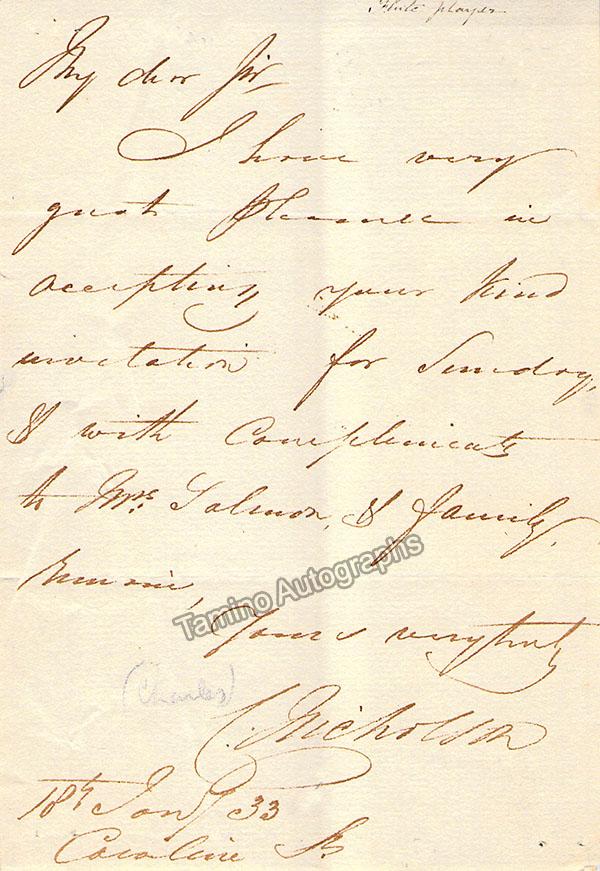 Flute player
My dear Sir
I have very
great pleasure in
accepting your kind
invitation for Sunday,
& with Compliments
to Mrs. Salmon, & family,
remain,
Tamino Autographs
Yours very truly
(Charles)
C. Nicholson
18th Jany 33
Caroline St